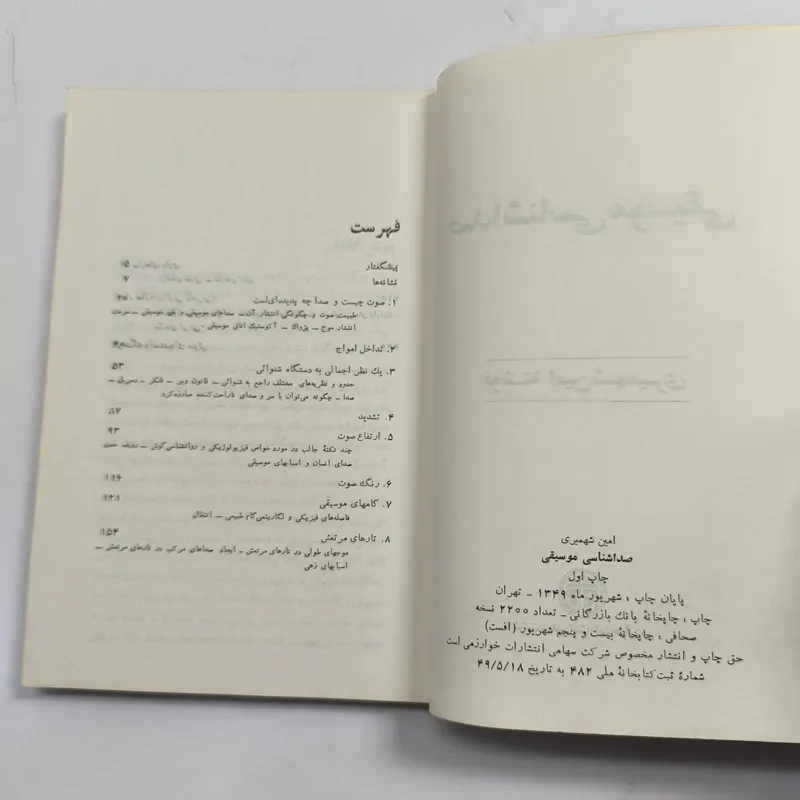 امین شهمیری
صداشناسی موسیقی
چاپ اول
پایان چاپ : شهریور ماه ۱۳۴۹ ـ تهران
چاپ : چاپخانهٔ بانک بازرگانی ـ تعداد ۲۲۰۰ نسخه
صحافی : چاپخانهٔ بیست و پنجم شهریور (افست)
حق چاپ و انتشار مخصوص شرکت سهامی انتشارات خوارزمی است
شمارهٔ ثبت کتابخانهٔ ملی ۴۸۲ به تاریخ ۴۹/۵/۱۸
فهرست
پیشگفتار ۵
نشانه‌ها ۷
۱. صوت چیست و صدا چه پدیده‌ای‌است
طبیعت صوت و چگونگی انتشار آن ـ صداهای موسیقی و غیر موسیقی ـ سرعت
انتشار موج ـ پژواك ـ آکوستیك اتاق موسیقی
۲. تداخل امواج
۳. یك نظر اجمالی به دستگاه شنوائی ۵۳
حدود و نظریه‌های مختلف راجع به شنوائی ـ قانون وبر ـ فخنر ـ دسی‌بل ـ
صدا ـ چگونه می‌توان با سر و صدای ناراحت‌کننده مبارزه‌کرد
۴. تشدید ۸۷
۵. ارتفاع صوت ۹۳
چند نکتهٔ جالب در مورد خواص فیزیولوژیکی و روانشناسی گوش ـ
صدای انسان و اسبابهای موسیقی
۶. رنگ صوت ۱۱۶
۷. گامهای موسیقی ۱۲۱
فاصله‌های فیزیکی و لگاریتمی گام طبیعی ـ انتقال
۸. تارهای مرتعش ۱۵۴
موجهای طولی در تارهای مرتعش ـ ایجاد صداهای مرکب در تارهای مرتعش ـ
اسبابهای زهی